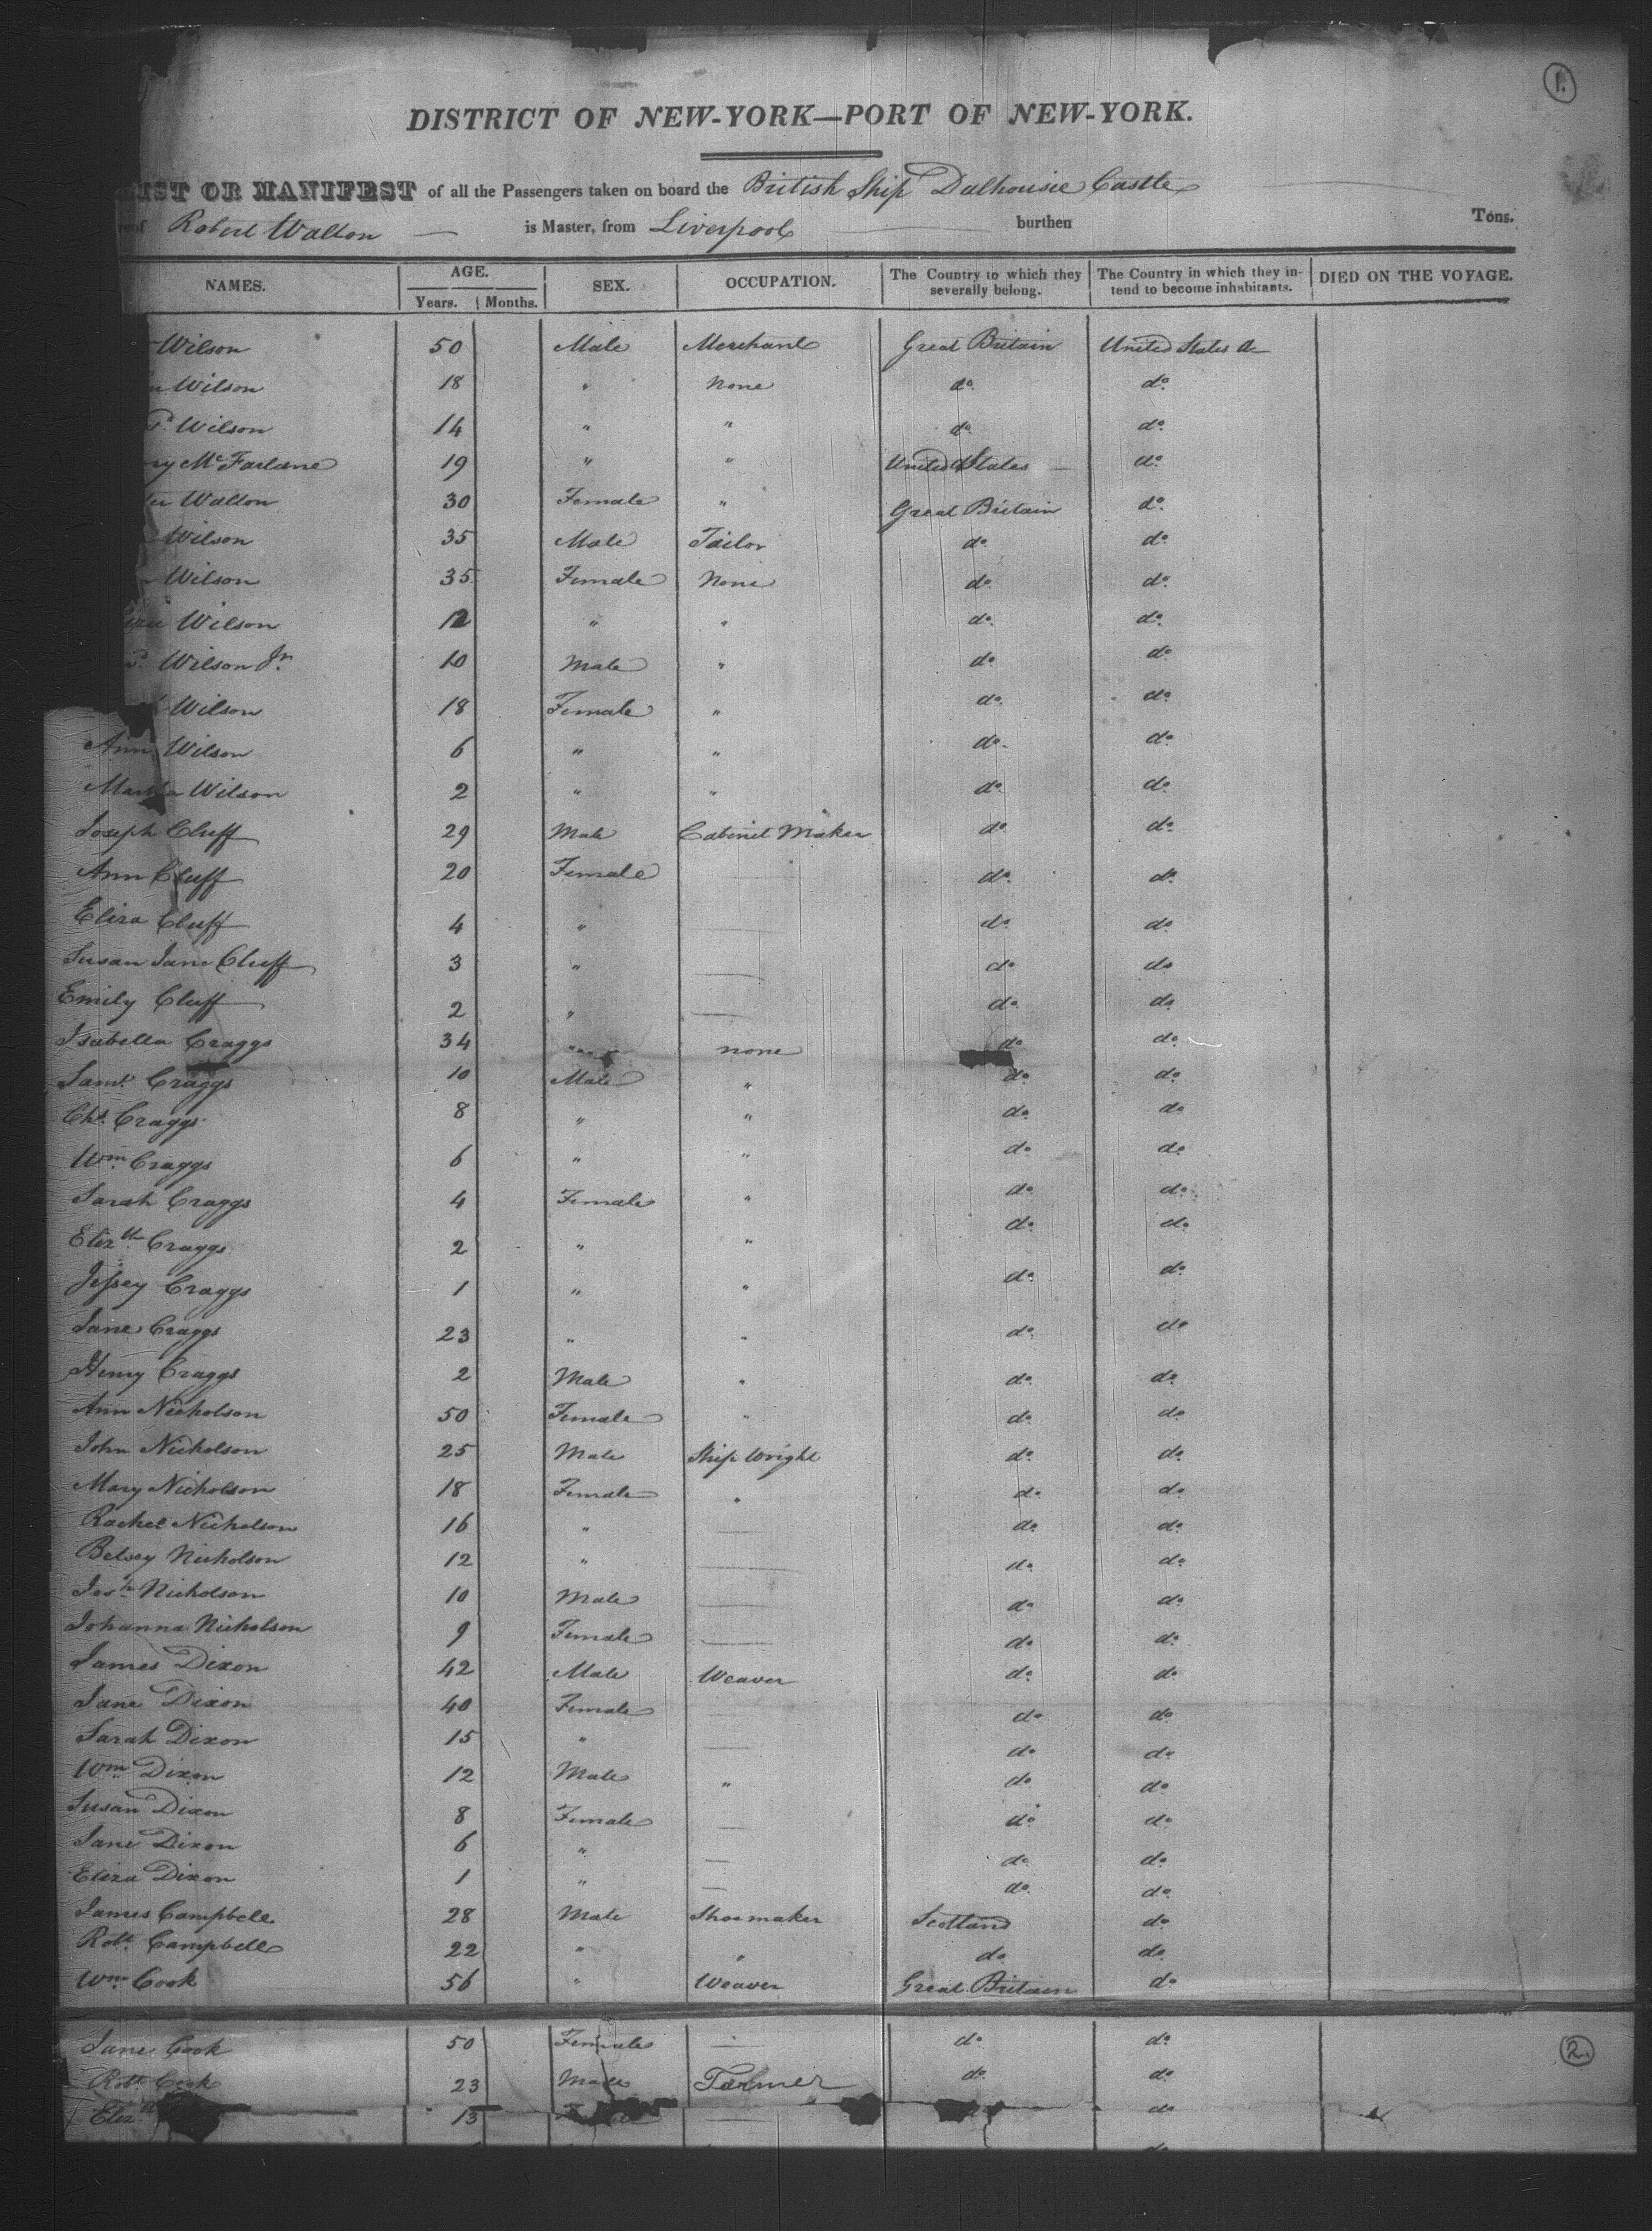 1.
DISTRICT OF NEW-YORK—PORT OF NEW-YORK.
IST OR MANIFEST of all the Passengers taken on board the British Ship Dalhousie Castle
of Robert Walton — is Master, from Liverpool burthen Tons.
NAMES. AGE. Years. Months. SEX. OCCUPATION. The Country to which they severally belong. The Country in which they intend to become inhabitants. DIED ON THE VOYAGE.
Wilson 50 Male Merchant Great Britain United States
Wilson 18 " None do. do.
Wilson 14 " " do. do.
McFarlane 19 " " United States — do.
Walton 30 Female " Great Britain do.
Wilson 35 Male Tailor do. do.
Wilson 35 Female None do. do.
Wilson 12 " " do. do.
Wilson Jr. 10 Male " do. do.
Wilson 18 Female " do. do.
Ann Wilson 6 " " do. do.
Martha Wilson 2 " " do. do.
Joseph Cluff 29 Male Cabinet Maker do. do.
Ann Cluff 20 Female — do. do.
Eliza Cluff 4 " — do. do.
Susan Jane Cluff 3 " — do. do.
Emily Cluff 2 " — do. do.
Isabella Craggs 34 " none do. do.
Saml. Craggs 10 Male " do. do.
Chs. Craggs 8 " " do. do.
Wm. Craggs 6 " " do. do.
Sarah Craggs 4 Female " do. do.
Elizth. Craggs 2 " " do. do.
Jessey Craggs 1 " " do. do.
Jane Craggs 23 " " do. do.
Henry Craggs 2 Male " do. do.
Ann Nicholson 50 Female " do. do.
John Nicholson 25 Male Ship Wright do. do.
Mary Nicholson 18 Female " do. do.
Rachel Nicholson 16 " — do. do.
Betsey Nicholson 12 " — do. do.
Josh. Nicholson 10 Male — do. do.
Johanna Nicholson 9 Female — do. do.
James Dixon 42 Male Weaver do. do.
Jane Dixon 40 Female — do. do.
Sarah Dixon 15 " — do. do.
Wm. Dixon 12 Male " do. do.
Susan Dixon 8 Female — do. do.
Jane Dixon 6 " — do. do.
Eliza Dixon 1 " — do. do.
James Campbell 28 Male Shoemaker Scotland do.
Robt. Campbell 22 " " do. do.
Wm. Cook 56 " Weaver Great Britain do.
Jane Cook 50 Female — do. do.
2.
Robt. Cook 23 Male Farmer do. do.
Elizth. 13 — do.